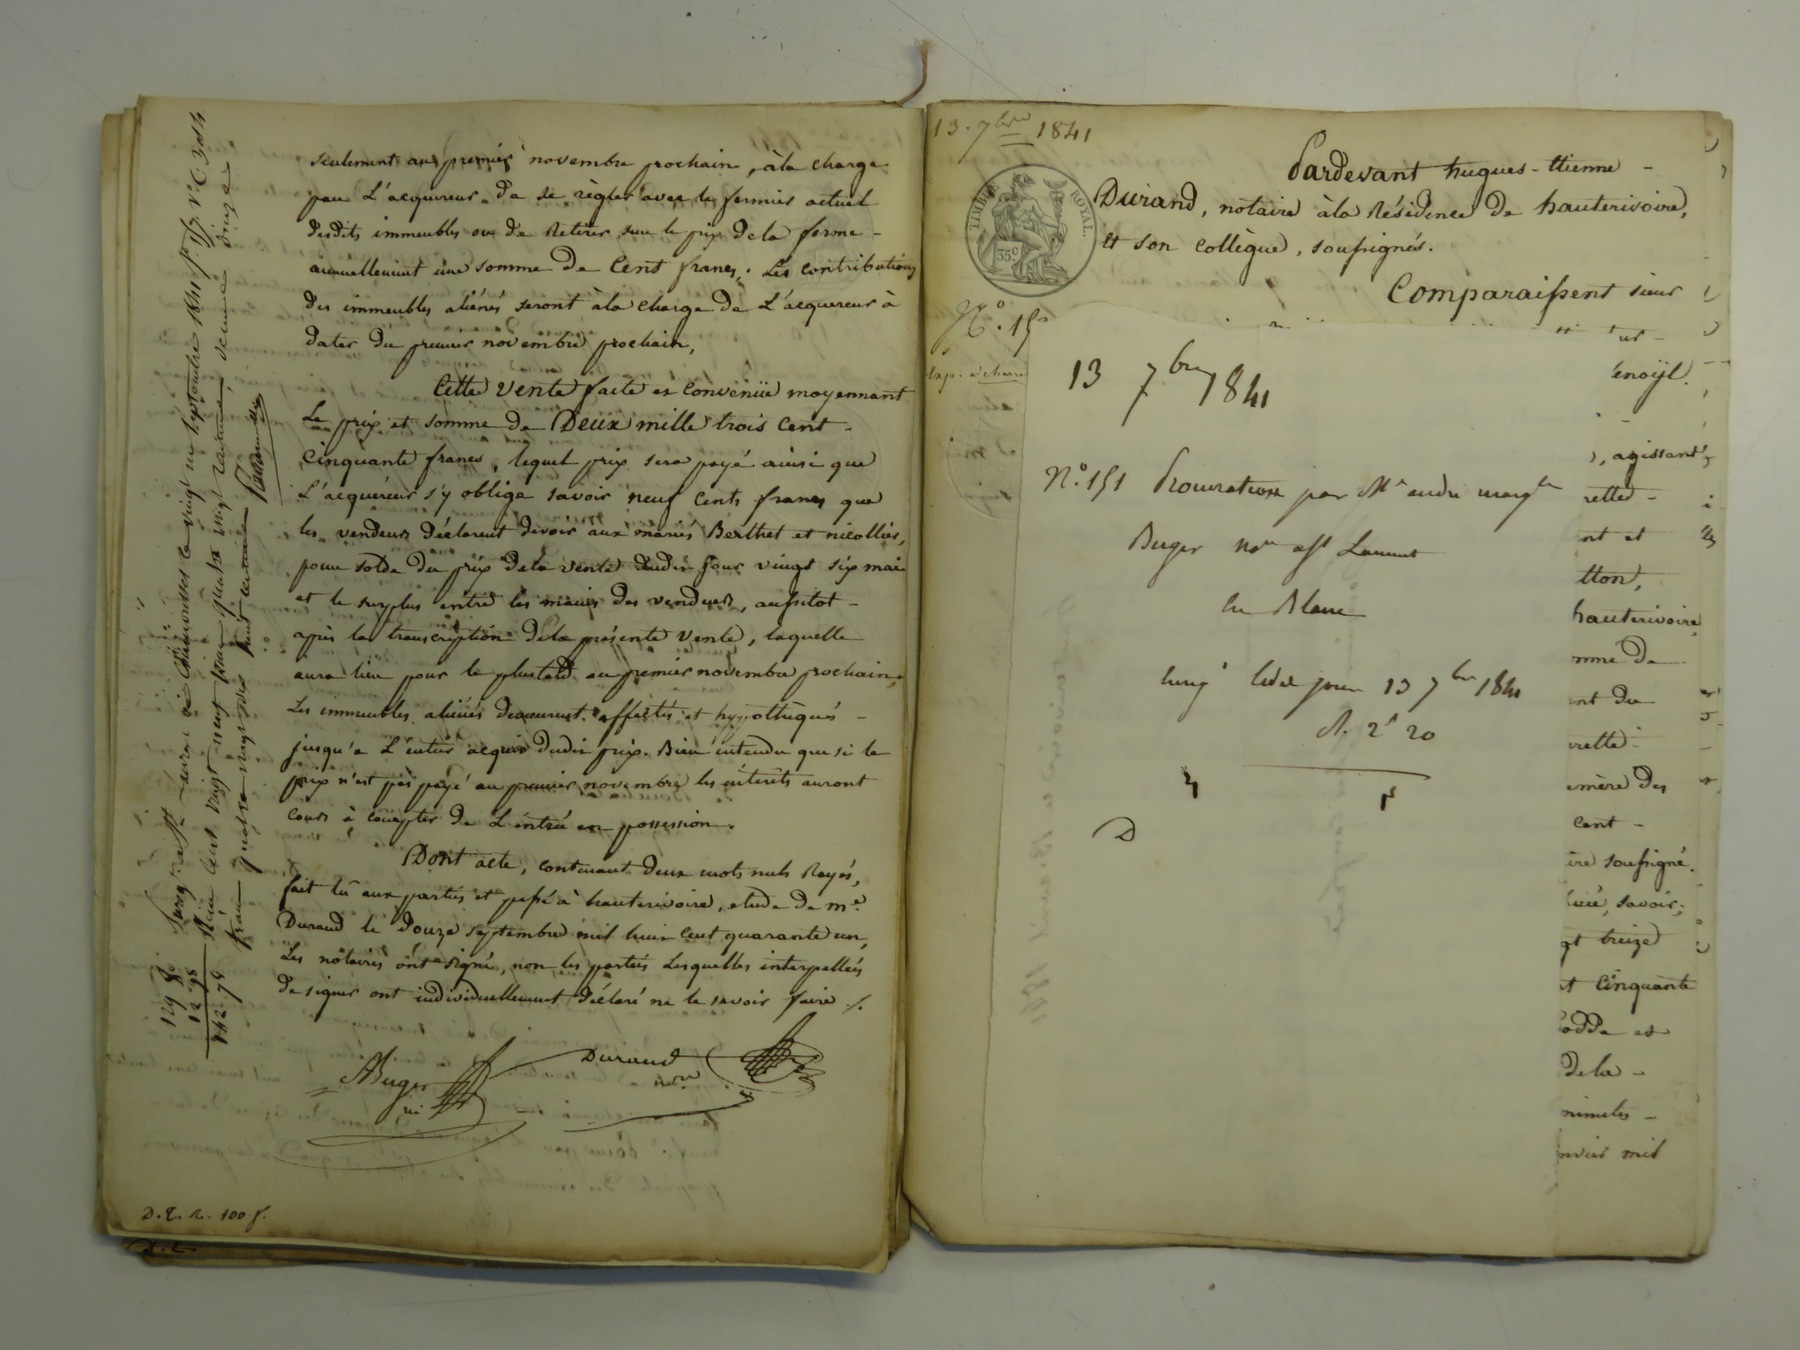 seulement au premier novembre prochain, à la charge
par L'acquéreur de se règler avec le fermier actuel
desdits immeubles ou de Retirer sur le prix de la ferme -
annuellement une somme de Cent francs. Les contributions
des immeubles aliénés seront à la charge de L'acquereur à
dater du premier novembre prochain,
Cette vente faite et Convenüe moyennant
Le prix et somme de Deux mille trois Cent -
Cinquante francs, lequel prix sera payé ainsi que
L'acquéreur s'y oblige savoir neuf Cents francs que
les vendeurs déclarent devoir aux mariés Berthet et nicollier,
pour solde du prix de la vente dudit jour vingt six mai
et le surplus entre les mains des vendeurs, aussitot -
après la transcription de la présente vente, laquelle
aura lieu pour le plustard au premier novembre prochain,
Les immeubles aliénés demeurent affectés et hypothèqués -
jusqu'a L'entier acquis dudit prix. Bien entendu que si le
prix n'est pas payé au premier novembre les intérêts auront
cours à compter de L'entrée en possession.
Dont acte, contenant deux mots nuls Rayés,
fait lu aux parties et passé à hauterivoire, etude de me
Durand le Douze septembre mil huit cent quarante un,
Les notaires ont signé, non les parties Lesquelles interpellées
de signer ont individuellement déclaré ne le savoir faire ./.
ABuger
Durand
nre
129 80
12 98
142 78
D. E. R. 100 f.
D. E.
13. 7bre 1841
Pardevant hugues-Etienne -
Durand, notaire à la Résidence de hauterivoire,
TIMBRE ROYAL
35c
Et son collègue, soussignés.
Comparaissent sieur
No. 15
enoijl.
13 7bre 1841
, agissant
No. 151 Procuration par
rette -
nt et
Buger nre
tton,
en Blanc
hauterivoire,
mme de
cedit jour 13 7bre 1841
nt du
R. 2f 20
rette
emère des
cent -
D
ire soussigné.
savoir;
gt treize
t Cinquante
odde et
de la -
minutes -
nvier mil